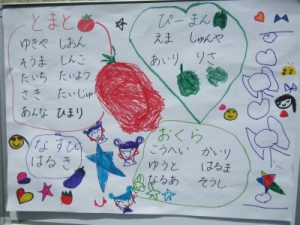 とまと
ゆきや しおん
そうま しんご
たいち たいよう
さき たいじゅ
あんな ひまり
ぴーまん
えま しゅんや
あいり りさ
なすび
はるき
おくら
こうへい かいり
ゆうと はるま
なるあ そうし